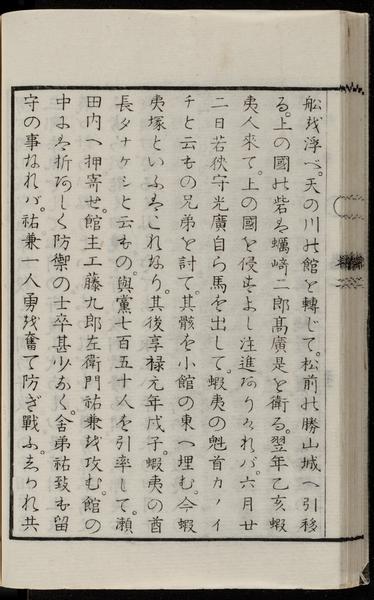 舩越浮べ。天の川の館を轉じて。松前の勝山城へ引移
る。上の國の砦は蠣崎二郎高廣是を衛る。翌年乙亥蝦
夷人來て。上の國を侵すよし注進ありければ。六月廿
二日若狹守光廣自ら馬を出して。蝦夷の魁首カノイ
チと云もの兄弟を討て。其骸を小館の東へ埋む。今蝦
夷塚といふはこれなり。其後享禄元年戊子。蝦夷の酋
長タナケシと云もの。與黨七百五十人を引率して。瀬
田内へ押寄せ。館主工藤九郎左衛門祐兼を攻む。館の
中には折あしく防禦の士卒甚少なく。舎弟祐致も留
守の事なれバ。祐兼一人勇を奮て防ぎ戰ふ。されれ共